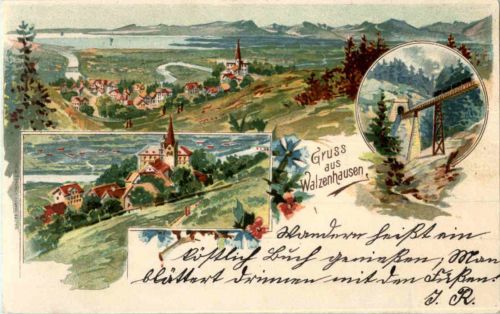 Gruss
aus
Walzenhausen.
Wandern heißt ein
köstlich Buch genießen, Man
blättert drinnen mit den Füßen.
J. R.